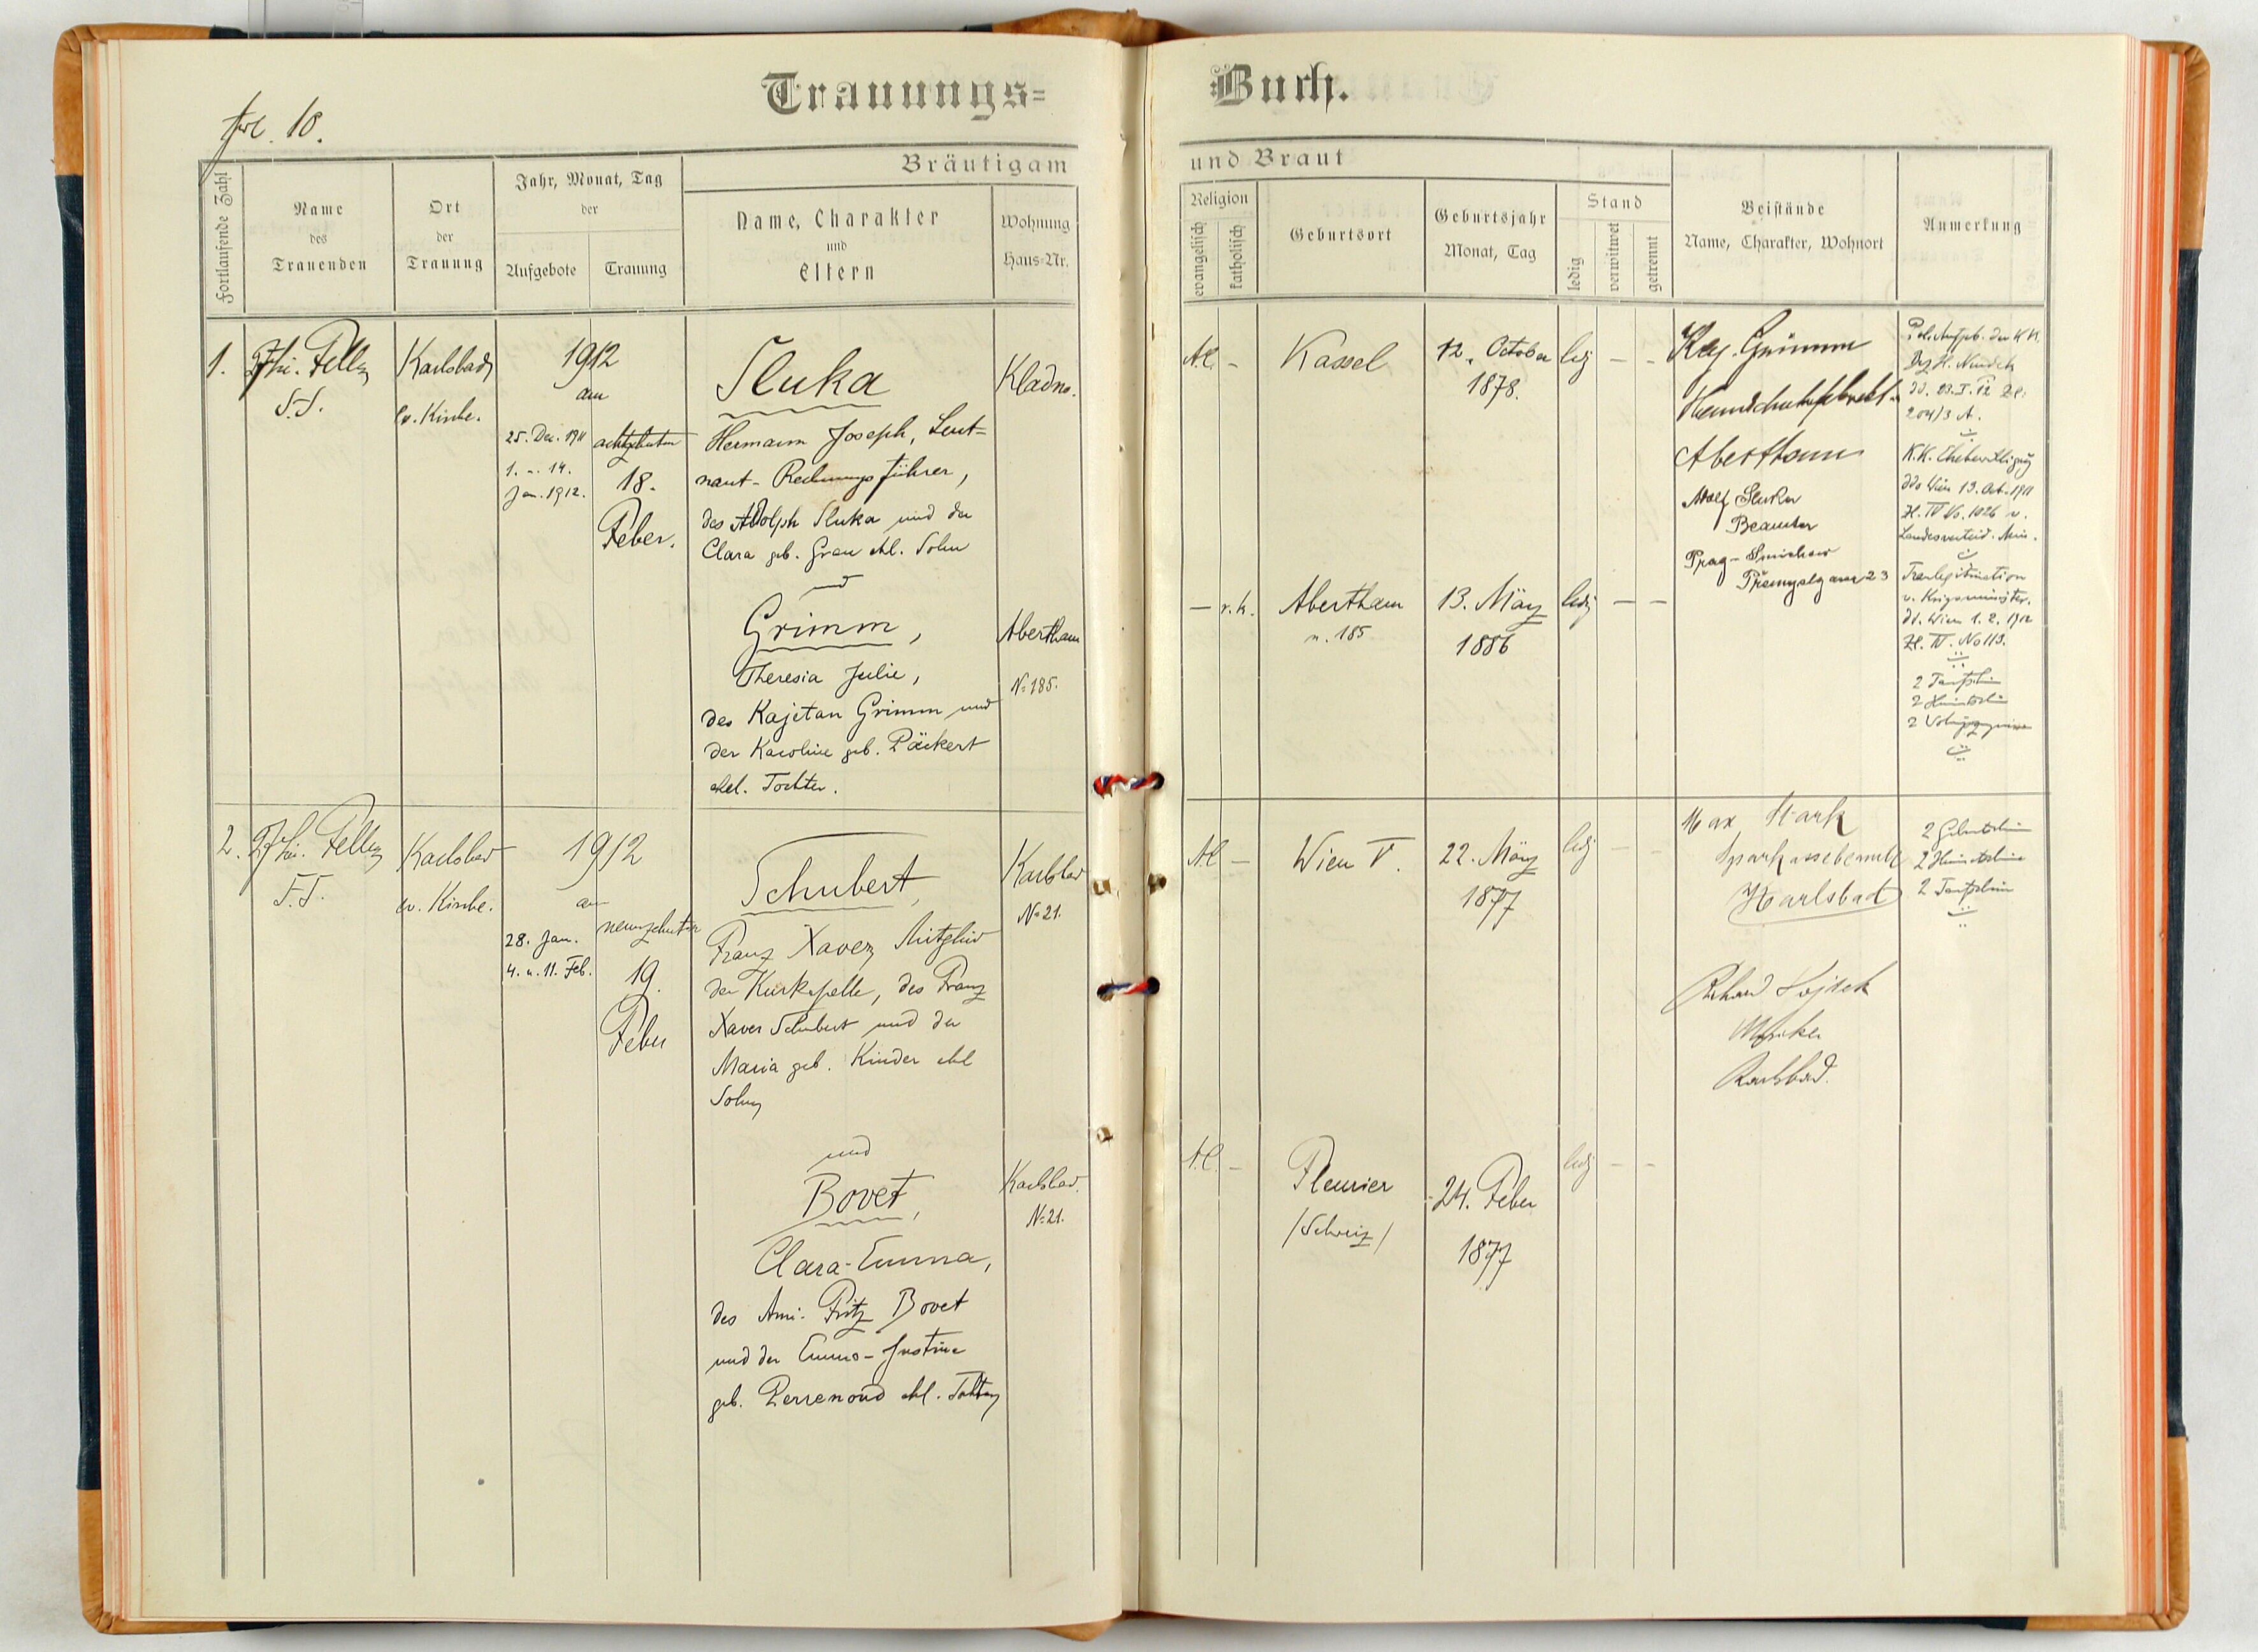 Trauungs=
Buch.
fol. 10.
Fortlaufende Zahl
Name
des
Trauenden
Ort
der
Trauung
Jahr, Monat, Tag
der
Aufgebote
Trauung
Bräutigam
Name, Charakter
und
Eltern
Wohnung
Haus=Nr.
und Braut
Religion
evangelisch
katholisch
Geburtsort
Geburtsjahr
Monat, Tag
Stand
ledig
verwitwet
getrennt
Beistände
Name, Charakter, Wohnort
Anmerkung
1.
Karlsbad
ev. Kirche.
1912
am
25. Dez. 1911
1. u. 14.
Jan. 1912.
achtzehnten
18.
Feber.
Sluka
Hermann Joseph, Leut=
nant-Rechnungsführer,
des Adolph Sluka und der
Clara geb. Grau ehl. Sohn
und
Grimm,
Theresia Julie,
des Kajetan Grimm und
der Karoline geb. Päckert
ehel. Tochter.
Kladno.
Abertham
No 185.
A.C. -
Kassel
12. October
1878.
ledig - -
- r.k.
Abertham
n. 185
13. März
1886
ledig - -
Kaj. Grimm
Abertham
Adolf Sluka
Beamter
Prag - Smichow
Přemyslgasse 23
dd. 23. I. 12 Zl.
204/3 A.
K.K. Ehebewilligung
ddo Wien 13. Oct. 1911
Landesverteid. Min.
v. Kriegsminister.
dd. Wien 1. 2. 1912
Zl. IV. No 113.
2 Taufschein
2 Heimatschein
2.
Karlsbad
ev. Kirche.
1912
am
28. Jan.
4. u. 11. Feb.
neunzehnten
19.
Feber
Schubert,
Franz Xaver, Mitglied
der Kurkapelle, des Franz
Xaver Schubert und der
Maria geb. Kinder ehl
Sohn
und
Bovet,
Clara-Emma,
des Ami-Fritz Bovet
und der Emma-Justine
geb. Perrenoud ehl. Tochter
Karlsbad
No 21.
Karlsbad.
No 21.
A.C. -
Wien V.
22. März
1877
ledig - -
A.C. -
Fleurier
/Schweiz/
24. Feber
1877
ledig - -
Max Stark
Sparkassebeamte
Karlsbad
Musiker
Karlsbad.
2 Heimatschein
2 Taufschein